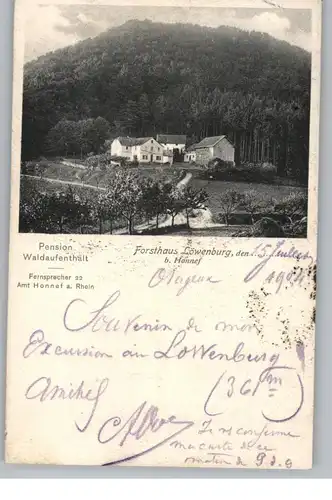 Pension
Waldaufenthalt
Fernsprecher 22
Amt Honnef a. Rhein
Forsthaus Löwenburg, den 15
b. Honnef
Souvenir de mon
Excursion au Lowenburg
(361m)
Amitiés
Je vs confirme
ma carte de ce
matin de